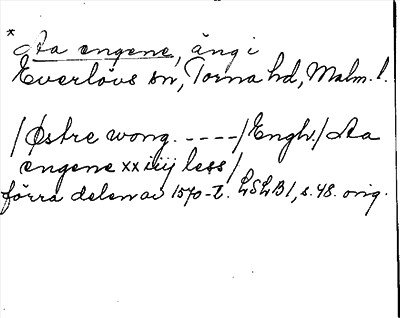 * Aa engene, äng i
Everlövs sn, Torna hd, Malm. l.
/Østre wong. ----/Engh./Aa
engene xx iiij less/
förra delen av 1570-t. LSLB 1, s. 48. orig.